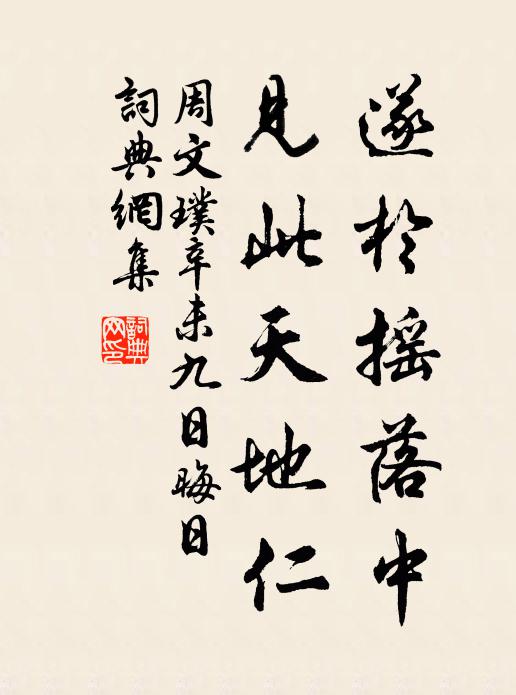 遂於摇落中
見此天地仁
周文璞辛未九日晦日
詞典網集
詞典网印